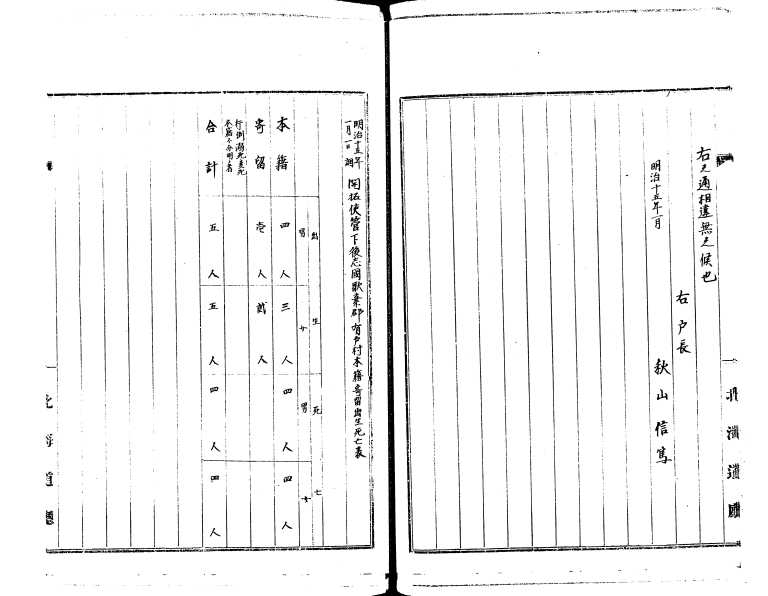 右之通相違無之候也
明治十五年一月
右戸長
秋山信篤
北海道廳
明治十五年
一月一日調
開拓使管下後志國歌棄郡有戸村本籍寄留出生死亡表
出生 死亡
男 女 男 女
本籍 四人 三人 四人 四人
寄留 壱人 貮人
行倒溺死変死
本籍不分明ノ者
合計 五人 五人 四人 四人
北海道廳